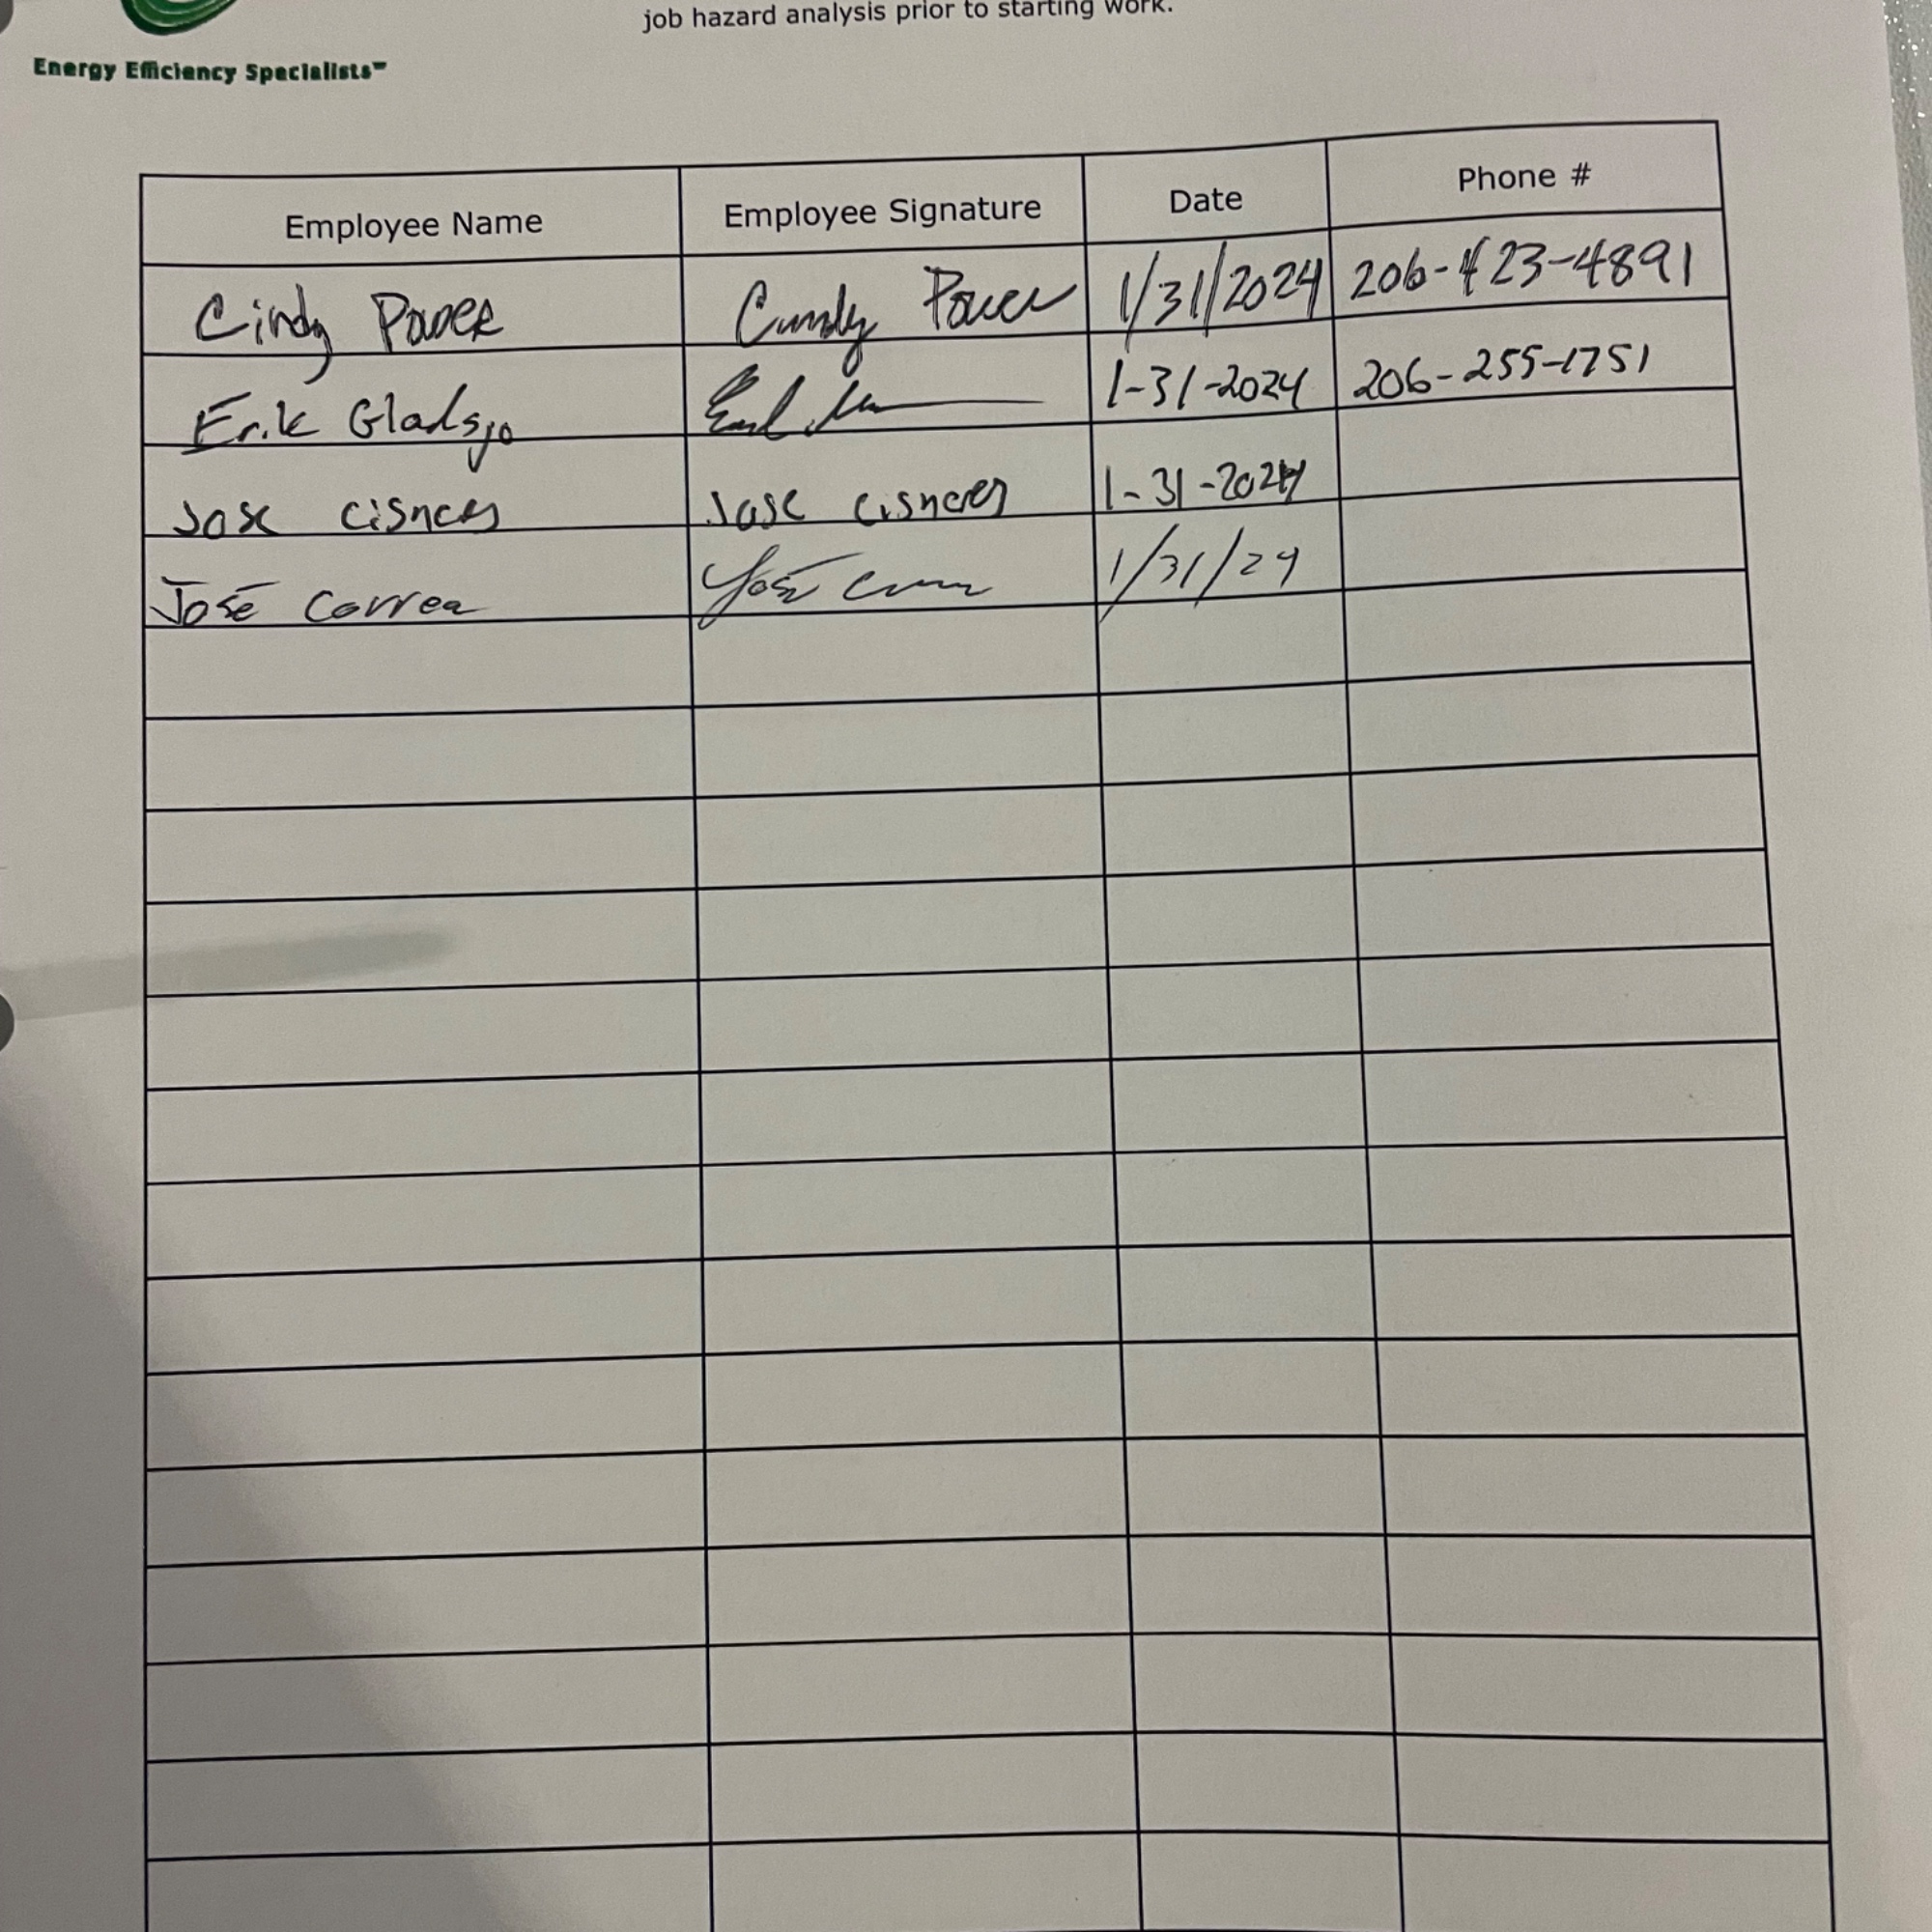 job hazard analysis prior to starting work.
Energy Efficiency Specialists™
Employee Name Employee Signature Date Phone #
Cindy Power Cindy Power 1/31/2024 206-423-4891
Erik Gladsjo 1-31-2024 206-255-1751
Jose Cisneros Jose Cisneros 1-31-2024
José Correa José 1/31/24